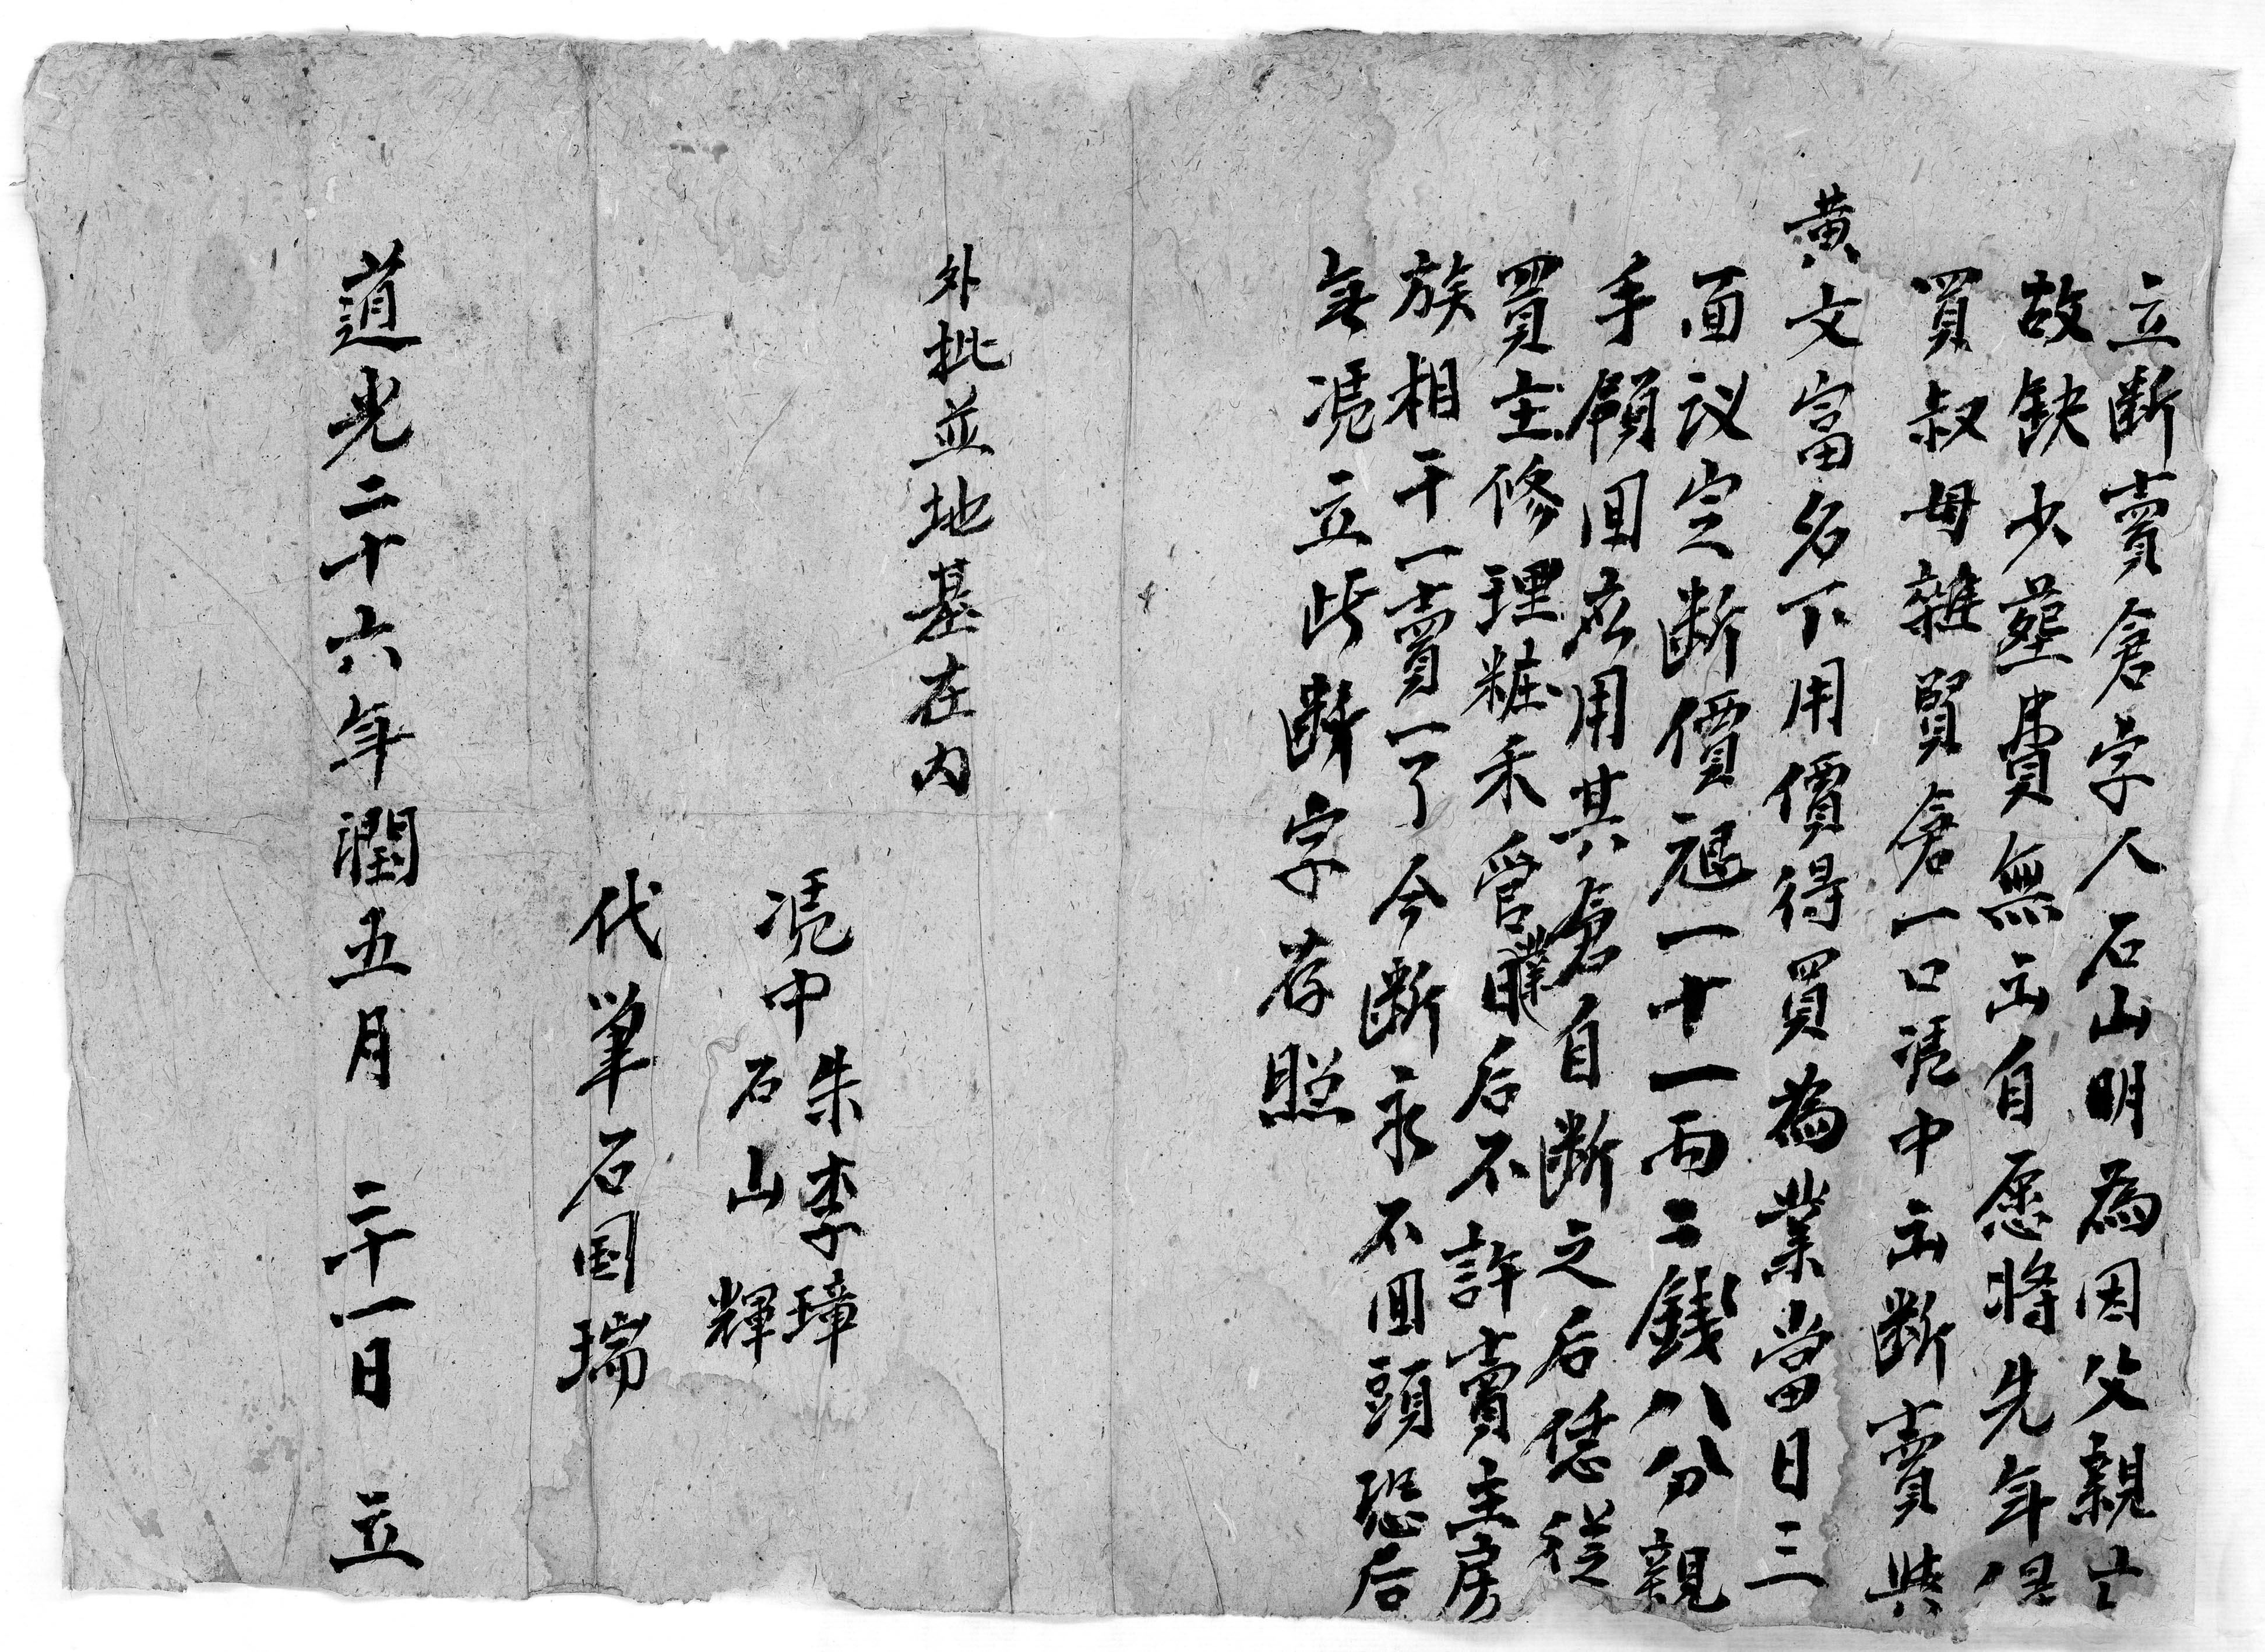 立断賣倉字人石山明為因父親亡
故缺少塟費無出自愿将先年得
買叔母雜賢倉一口凴中出断賣與
黄文富名下用價得買為業當日三
面议定断價艮一十一両二錢八分親
手領囬应用其倉自断之后恁從
買主修理粧禾管業后不許賣主房
族相干一賣一了今断永不囬頭恐后
無凴立此断字存照
外批並地基在内
凴中 朱李璋
石山輝
代筆石国瑞
道光二十六年潤五月 二十一日 立